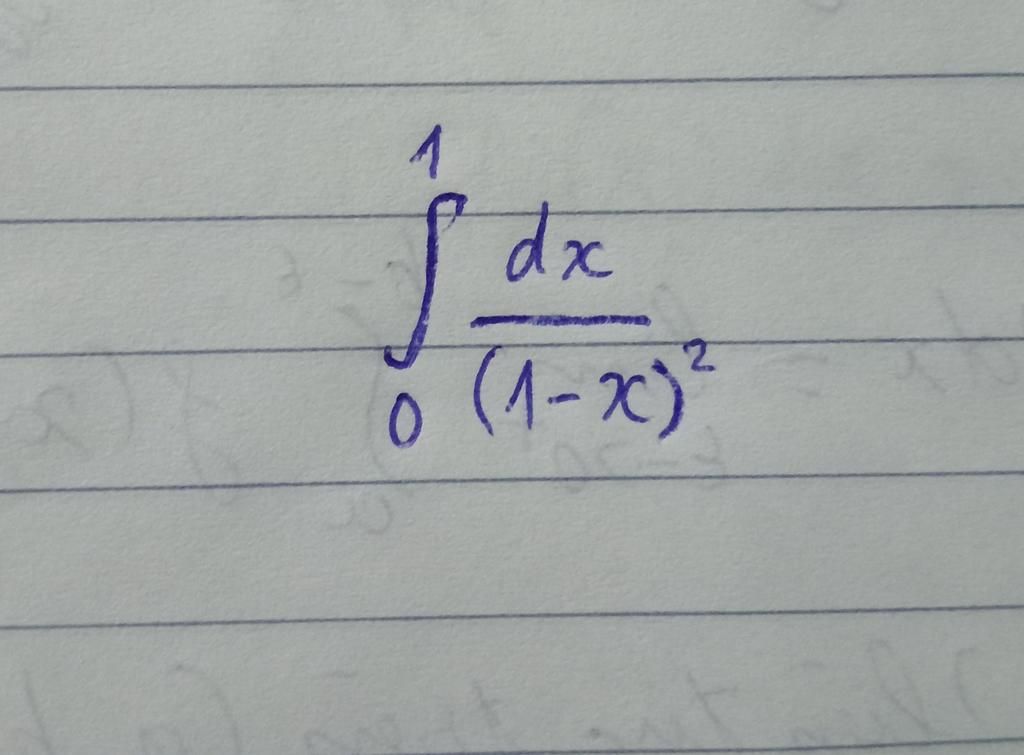 ∫₀¹ dx/(1-x)²